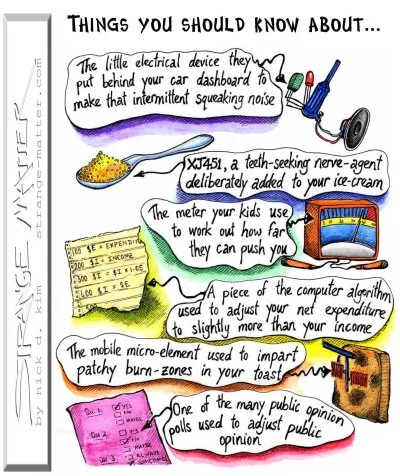 THINGS YOU SHOULD KNOW ABOUT...
The little electrical device they
put behind your car dashboard to
make that intermittent squeaking noise
XJ451, a teeth-seeking nerve-agent
deliberately added to your ice-cream
The meter your kids use
to work out how far
they can push you
100 $E = EXPENDITU
200 $I = INCOME
300 $I = $I × 1.05
400 $I = $E
500
A piece of the computer algorithm
used to adjust your net expenditure
to slightly more than your income
The mobile micro-element used to impart
patchy burn-zones in your toast
QU 1. YES
NO
MAYBE
QU 2 YES
NO
MAYBE
QU 3. ALWAYS
SOMETIMES
One of the many public opinion
polls used to adjust public
opinion
STRANGE MATTER
by nick d. kim strange-matter.com